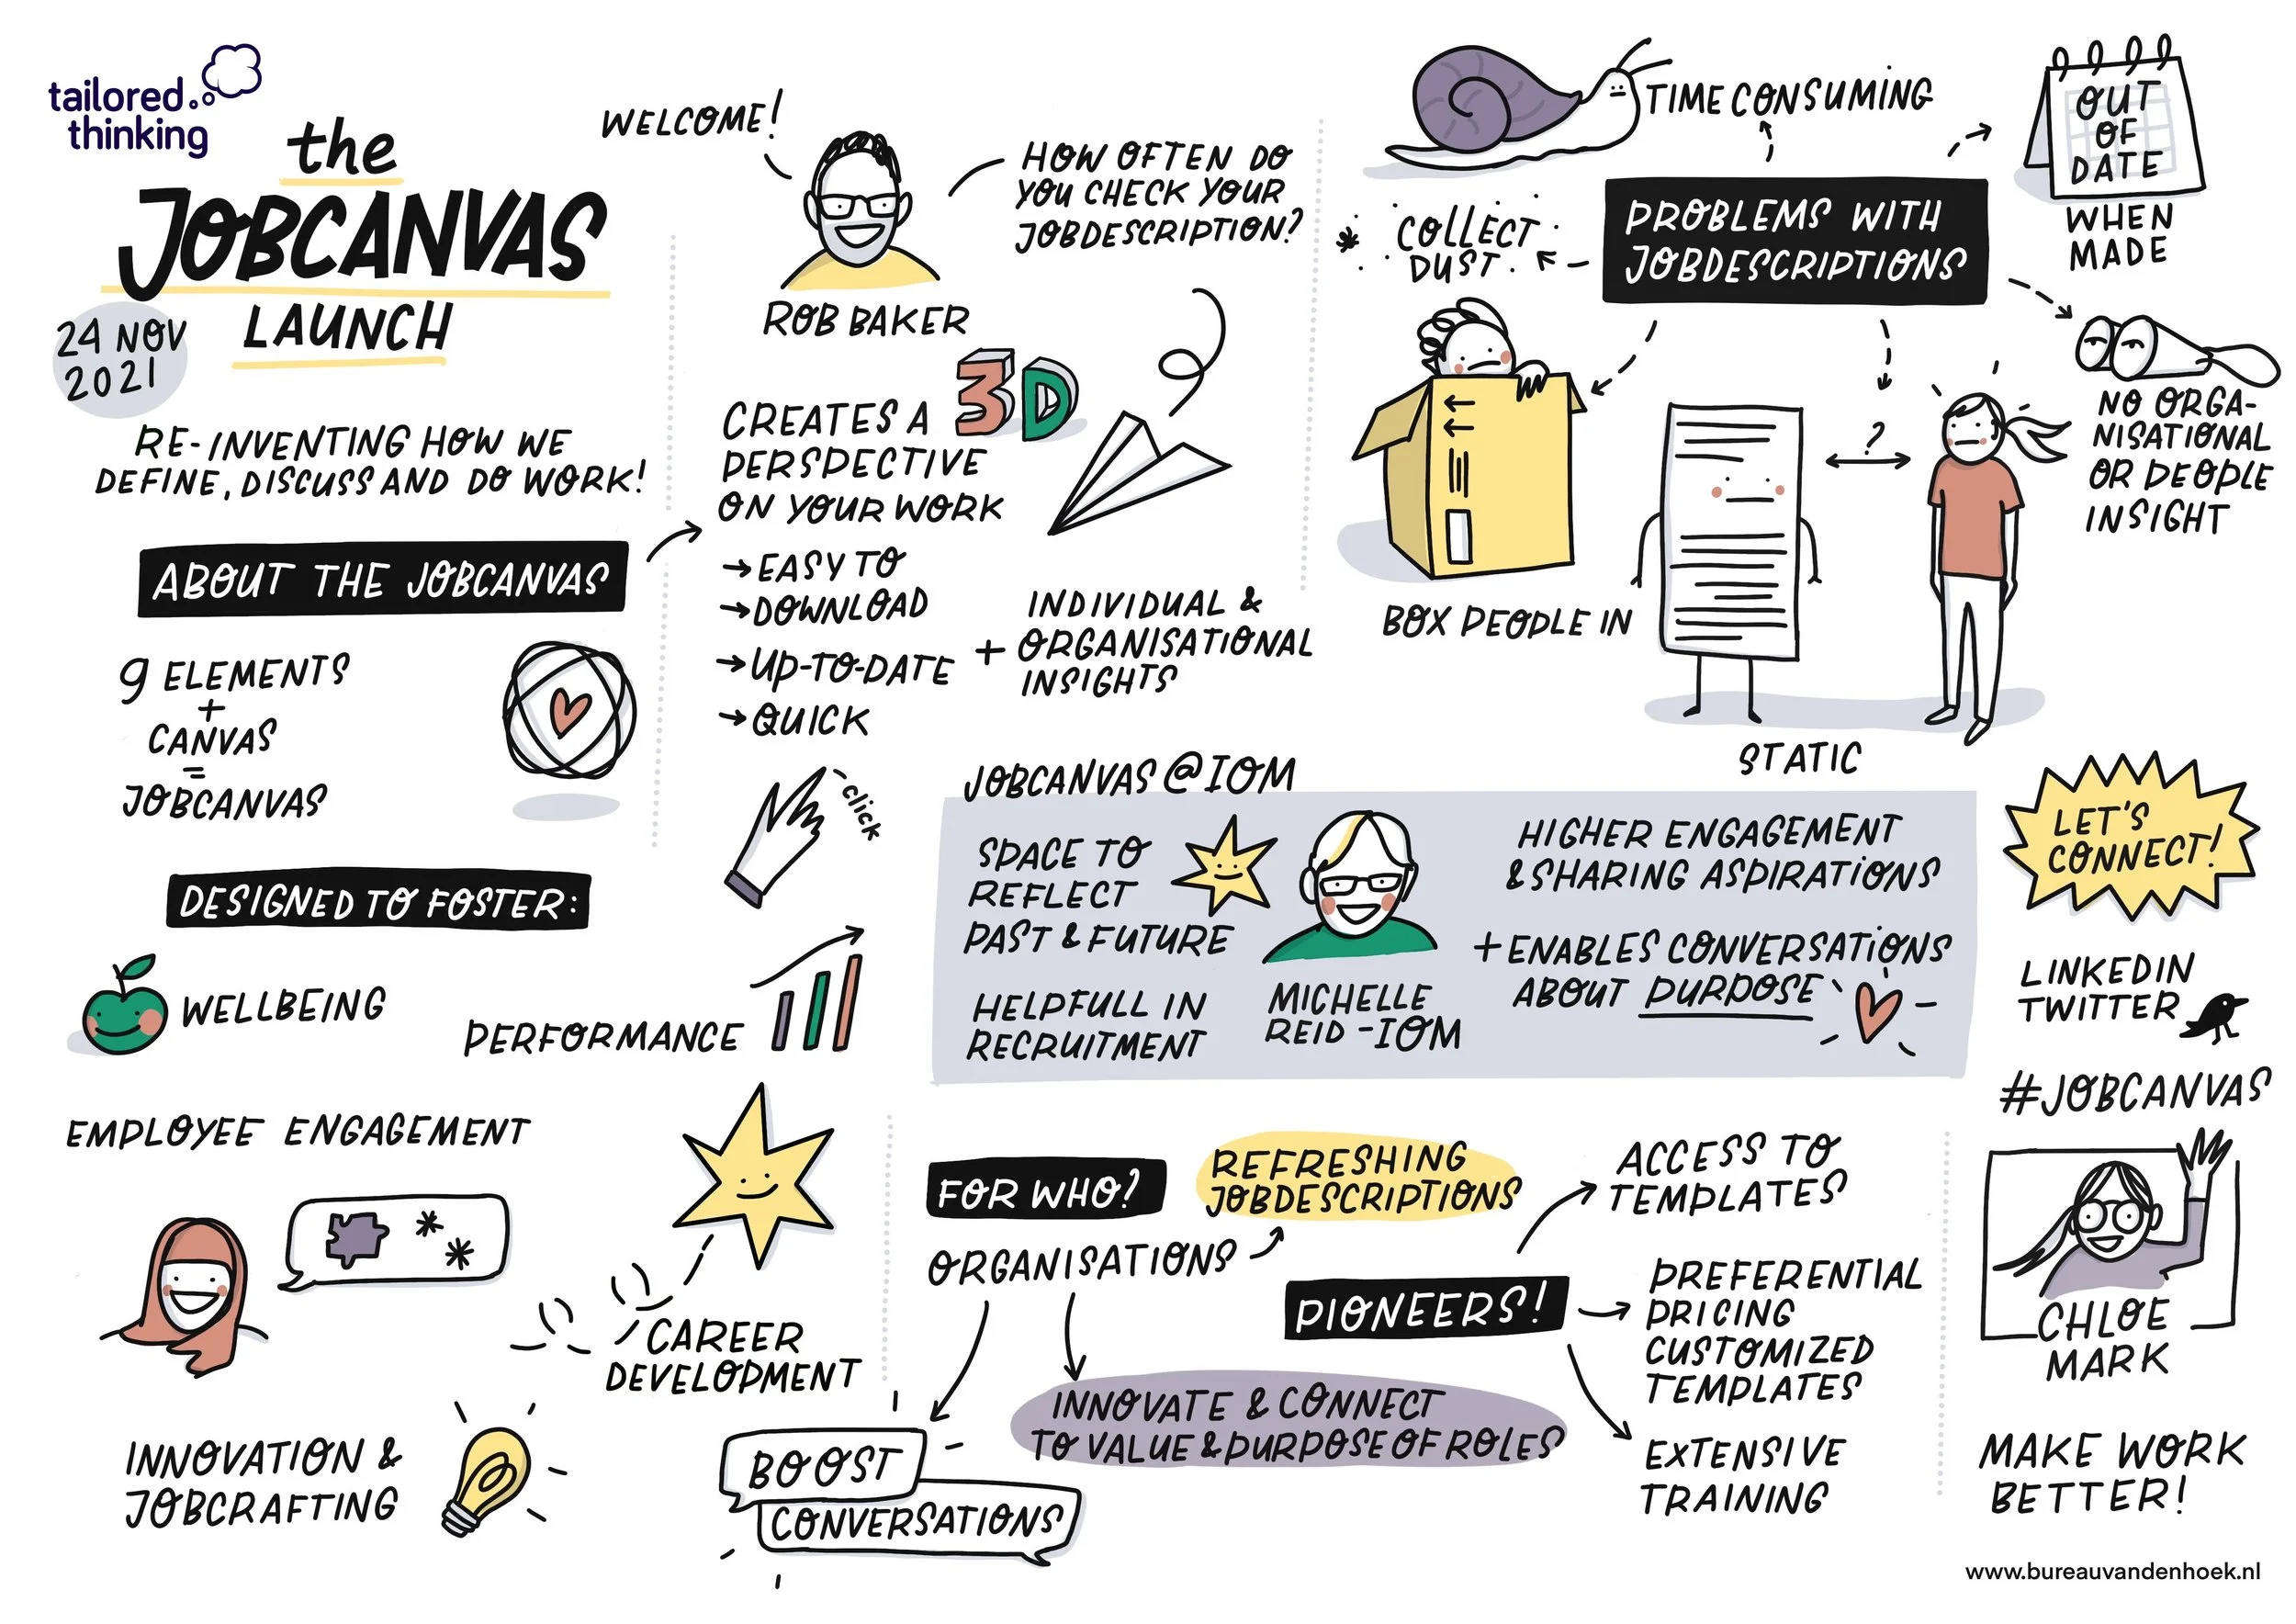 tailored
thinking
the
JOBCANVAS
LAUNCH
24 NOV
2021
RE-INVENTING HOW WE
DEFINE, DISCUSS AND DO WORK!
ABOUT THE JOBCANVAS
9 ELEMENTS
+
CANVAS
=
JOBCANVAS
DESIGNED TO FOSTER:
WELLBEING
PERFORMANCE
EMPLOYEE ENGAGEMENT
CAREER
DEVELOPMENT
INNOVATION &
JOBCRAFTING
WELCOME!
ROB BAKER
HOW OFTEN DO
YOU CHECK YOUR
JOBDESCRIPTION?
CREATES A 3D
PERSPECTIVE
ON YOUR WORK
→ EASY TO
→ DOWNLOAD
→ UP-TO-DATE
→ QUICK
+ INDIVIDUAL &
ORGANISATIONAL
INSIGHTS
click
PROBLEMS WITH
JOBDESCRIPTIONS
TIME CONSUMING
OUT
OF
DATE
WHEN
MADE
COLLECT
DUST
BOX PEOPLE IN
?
STATIC
NO ORGA-
NISATIONAL
OR PEOPLE
INSIGHT
JOBCANVAS @ IOM
SPACE TO
REFLECT
PAST & FUTURE
HELPFULL IN
RECRUITMENT
MICHELLE
REID - IOM
HIGHER ENGAGEMENT
& SHARING ASPIRATIONS
+ ENABLES CONVERSATIONS
ABOUT PURPOSE
FOR WHO?
ORGANISATIONS
REFRESHING
JOBDESCRIPTIONS
INNOVATE & CONNECT
TO VALUE & PURPOSE OF ROLES
BOOST
CONVERSATIONS
PIONEERS!
ACCESS TO
TEMPLATES
PREFERENTIAL
PRICING
CUSTOMIZED
TEMPLATES
EXTENSIVE
TRAINING
LET'S
CONNECT!
LINKEDIN
TWITTER
#JOBCANVAS
CHLOE
MARK
MAKE WORK
BETTER!
www.bureauvandenhoek.nl